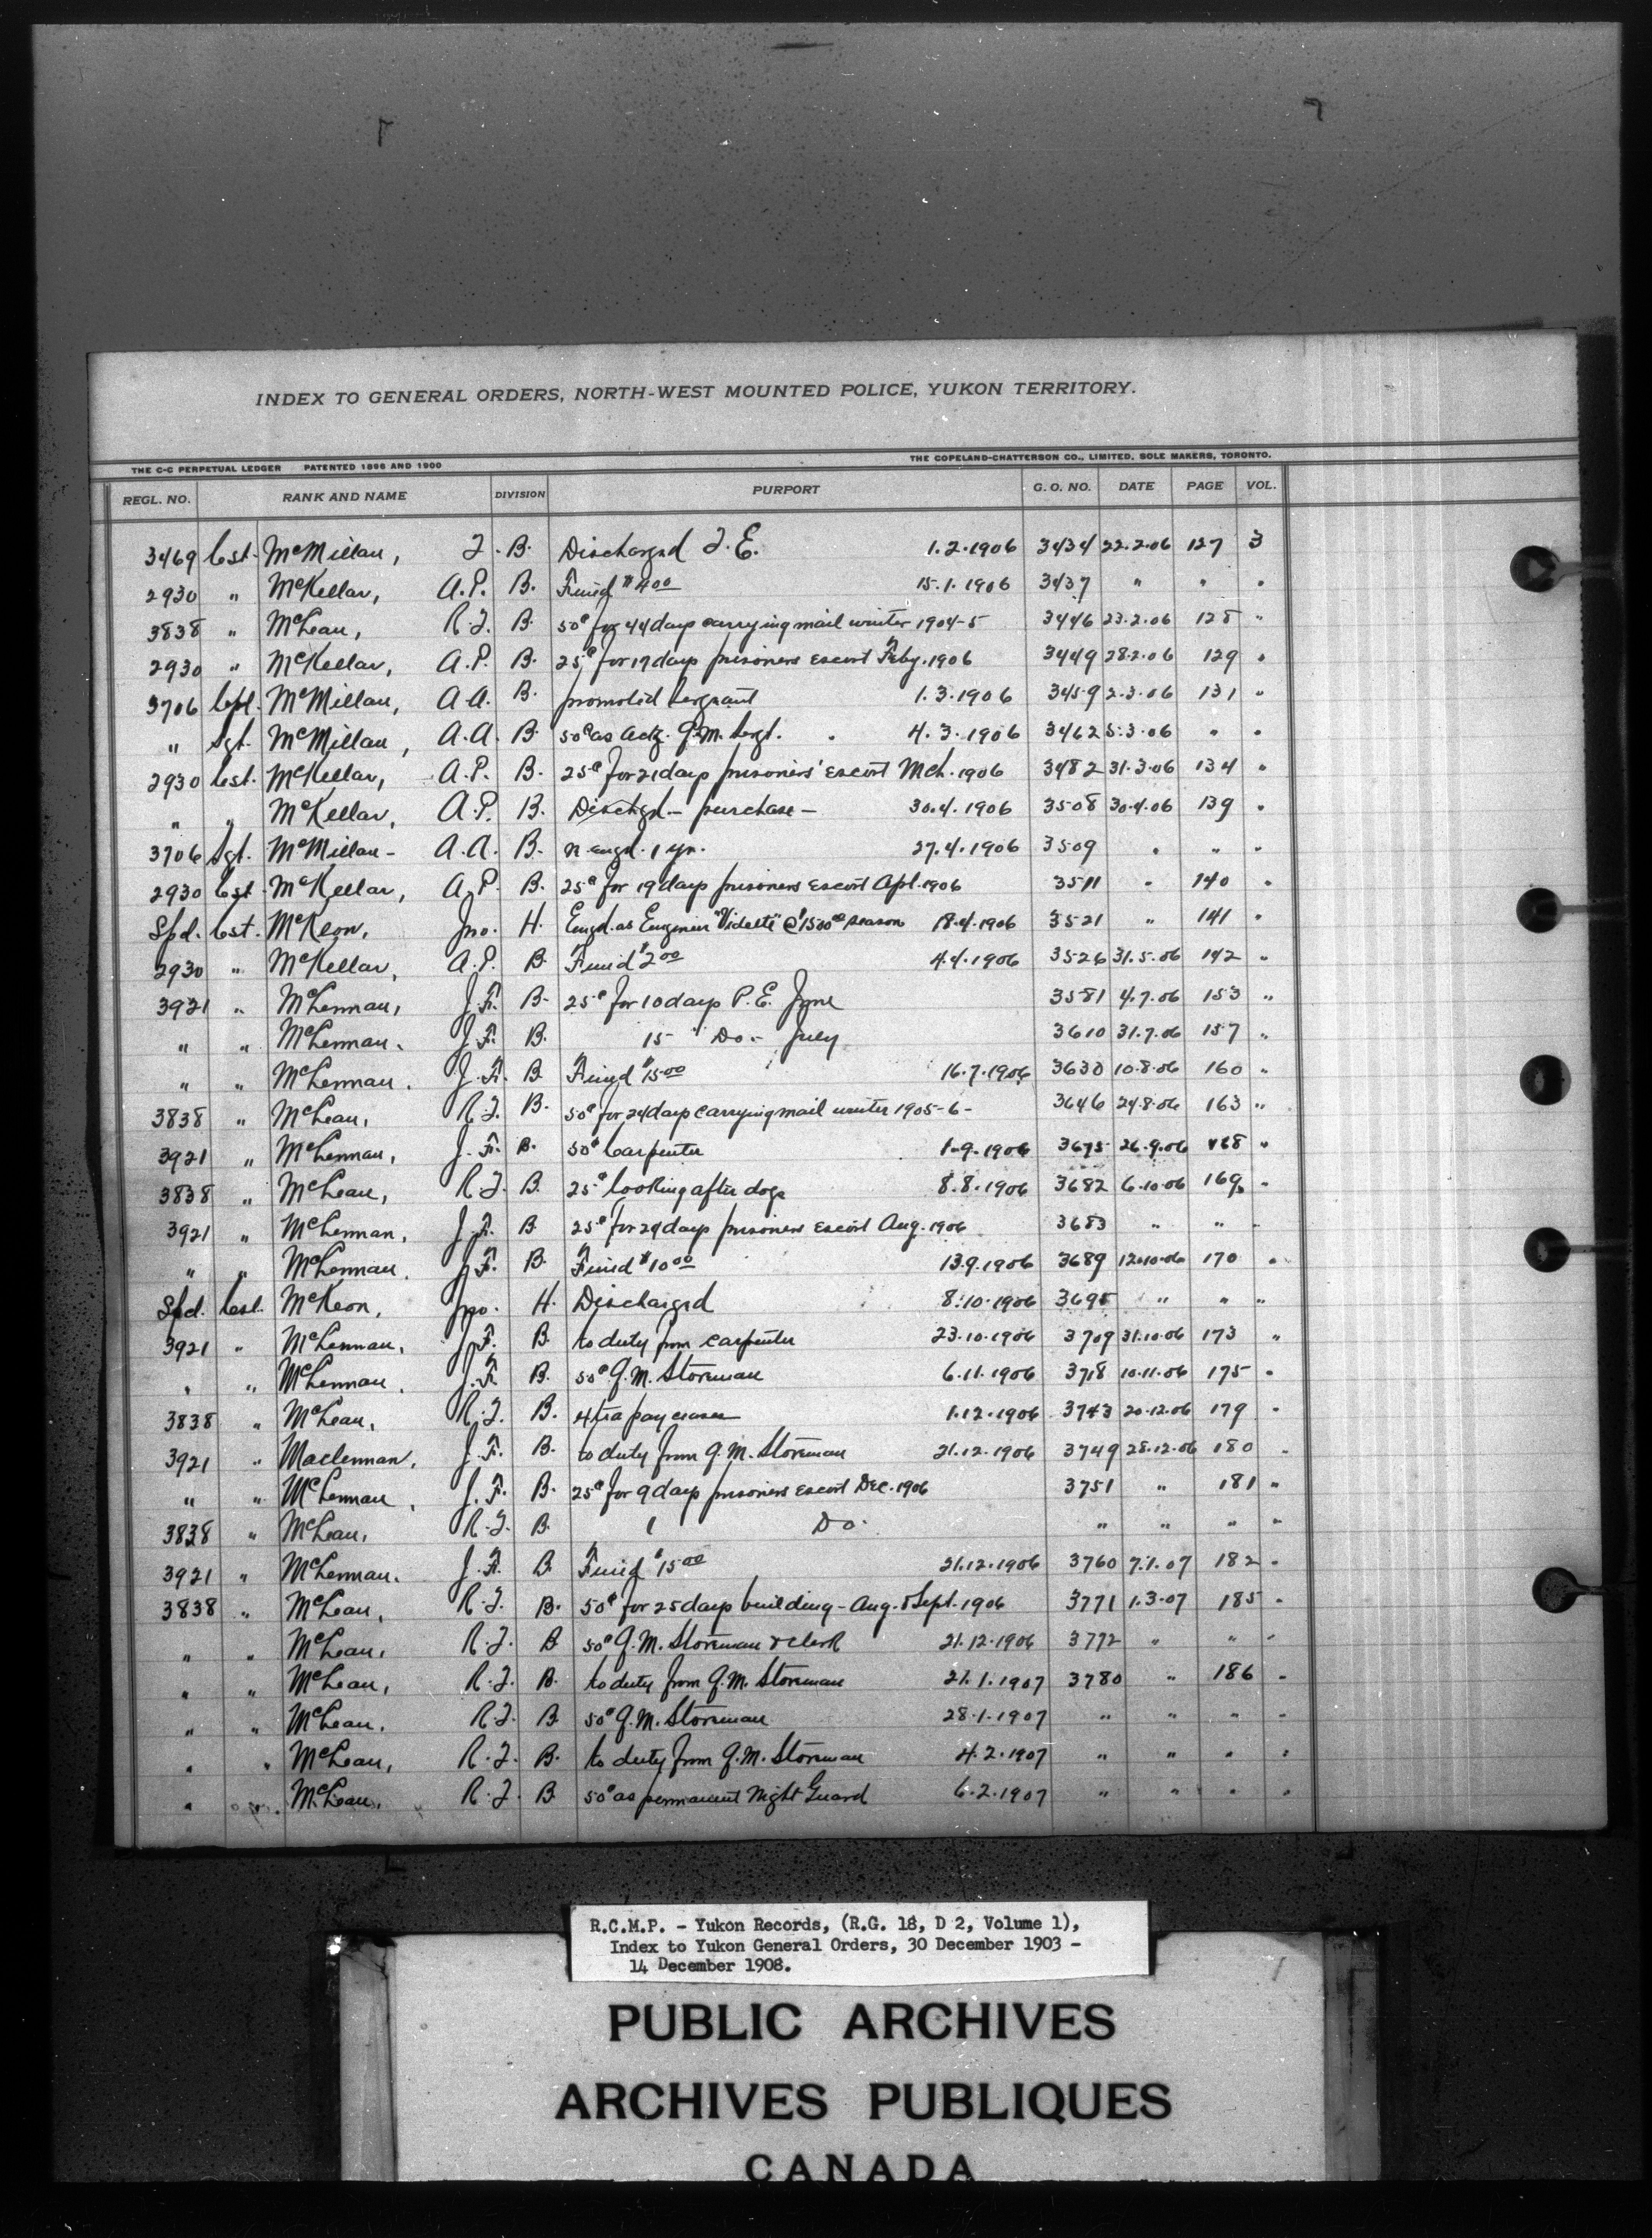 INDEX TO GENERAL ORDERS, NORTH-WEST MOUNTED POLICE, YUKON TERRITORY.
THE C-C PERPETUAL LEDGER PATENTED 1898 AND 1900 THE COPELAND-CHATTERSON CO., LIMITED. SOLE MAKERS, TORONTO.
REGL. NO. RANK AND NAME DIVISION PURPORT G. O. NO. DATE PAGE VOL.
3469 Cst. McMillan, J. B. Discharged T.E. 1.2.1906 3434 22.2.06 127 3
2930 " McKellar, A.P. B. Fined $4.00 15.1.1906 3437 " " "
3838 " McLean, R.J. B. 50¢ for 44 days carrying mail winter 1904-5 3446 23.2.06 128 "
2930 " McKellar, A.P. B. 25¢ for 17 days prisoners escort Feby. 1906 3449 28.2.06 129 "
3706 Cpl. McMillan, A.A. B. promoted Sergeant 1.3.1906 3459 2.3.06 131 "
" Sgt. McMillan, A.A. B. 50¢ as actg. Q.M. Sergt. 4.3.1906 3462 5.3.06 " "
2930 Cst. McKellar, A.P. B. 25¢ for 21 days prisoners' escort Mch. 1906 3482 31.3.06 134 "
" " McKellar, A.P. B. Dischgd - purchase - 30.4.1906 3508 30.4.06 139 "
3706 Sgt. McMillan - A.A. B. re-engd. 1 yr. 27.4.1906 3509 " " "
2930 Cst. McKellar, A.P. B. 25¢ for 19 days prisoners escort Apl. 1906 3511 " 140 "
Spd. Cst. McKeon, Jno. H. Engd. as Engineer "Vidette" @ $1500 season 18.4.1906 3521 " 141 "
2930 " McKellar, A.P. B. Fined $2.00 4.4.1906 3526 31.5.06 142 "
3921 " McLennan, J.F. B. 25¢ for 10 days P.E. June 3581 4.7.06 153 "
" " McLennan. J.F. B. 15 " Do - July 3610 31.7.06 157 "
" " McLennan. J.F. B Fined $15.00 16.7.1906 3630 10.8.06 160 "
3838 " McLean, R.J. B. 50¢ for 24 days carrying mail winter 1905-6 - 3646 24.8.06 163 "
3921 " McLennan, J.F. B. 50¢ Carpenter 1.9.1906 3675 26.9.06 168 "
3838 " McLean, R.J. B. 25¢ looking after dogs 8.8.1906 3682 6.10.06 169 "
3921 " McLennan, J.F. B 25¢ for 29 days prisoners escort Aug. 1906 3683 " " "
" " McLennan. J.F. B. Fined $10.00 13.9.1906 3689 12.10.06 170 "
Spd. Cst. McKeon, Jno. H. Discharged 8.10.1906 3695 " " "
3921 " McLennan, J.F. B. to duty from carpenter 23.10.1906 3709 31.10.06 173 "
" " McLennan. J.F. B. 50¢ Q.M. Storeman 6.11.1906 3718 10.11.06 175 "
3838 " McLean, R.J. B. Xtra pay ceases 1.12.1906 3743 20.12.06 179 "
3921 " Maclennan, J.F. B. to duty from Q.M. Storeman 21.12.1906 3749 28.12.06 180 "
" " McLennan, J.F. B. 25¢ for 9 days prisoners escort Dec. 1906 3751 " 181 "
3838 " McLean, R.J. B. 1 Do. " " " "
3921 " McLennan. J.F. B. Fined $15.00 21.12.1906 3760 7.1.07 182 "
3838 " McLean, R.J. B. 50¢ for 25 days building - Aug. & Sept. 1906 3771 1.3.07 185 "
" " McLean, R.J. B 50¢ Q.M. Storeman & Clerk 21.12.1906 3772 " " "
" " McLean, R.J. B. to duty from Q.M. Storeman 21.1.1907 3780 " 186 "
" " McLean. R.J. B 50¢ Q.M. Storeman 28.1.1907 " " " "
" " McLean, R.J. B. to duty from Q.M. Storeman 4.2.1907 " " " "
" " McLean, R.J. B 50¢ as permanent Night Guard 6.2.1907 " " " "
R.C.M.P. - Yukon Records, (R.G. 18, D 2, Volume 1),
Index to Yukon General Orders, 30 December 1903 -
14 December 1908.
PUBLIC ARCHIVES
ARCHIVES PUBLIQUES
CANADA